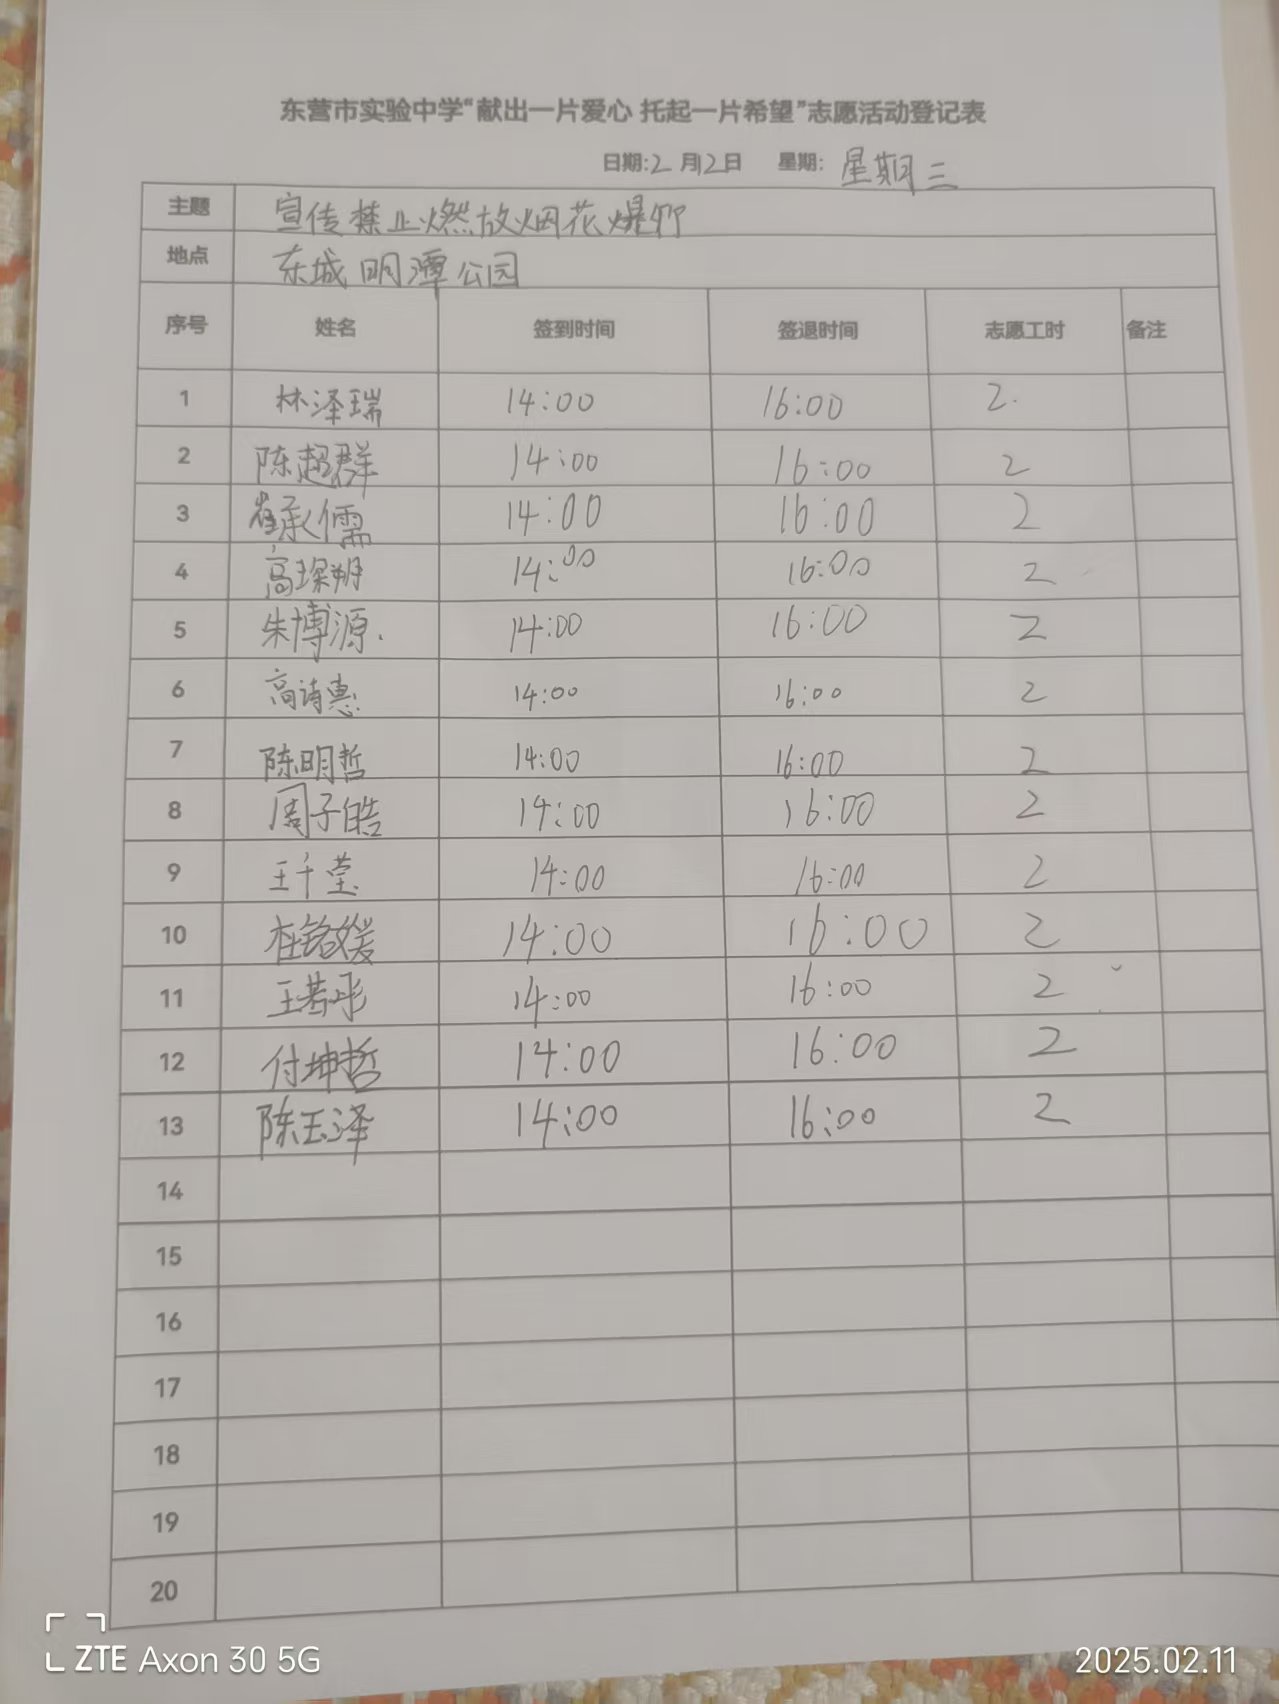 东营市实验中学“献出一片爱心 托起一片希望”志愿活动登记表
日期:2月12日 星期: 星期三
主题 宣传禁止燃放烟花爆竹
地点 东城明潭公园
序号 姓名 签到时间 签退时间 志愿工时 备注
1 林泽瑞 14:00 16:00 2.
2 陈超群 14:00 16:00 2
3 崔承儒 14:00 16:00 2
4 高琛翔 14:00 16:00 2
5 朱博源. 14:00 16:00 2
6 高诗惠. 14:00 16:00 2
7 陈明哲 14:00 16:00 2
8 周子皓 14:00 16:00 2
9 王千莹 14:00 16:00 2
10 杜铭媛 14:00 16:00 2
11 王若彤 14:00 16:00 2
12 付坤哲 14:00 16:00 2
13 陈玉泽 14:00 16:00 2
14
15
16
17
18
19
20
ZTE Axon 30 5G 2025.02.11